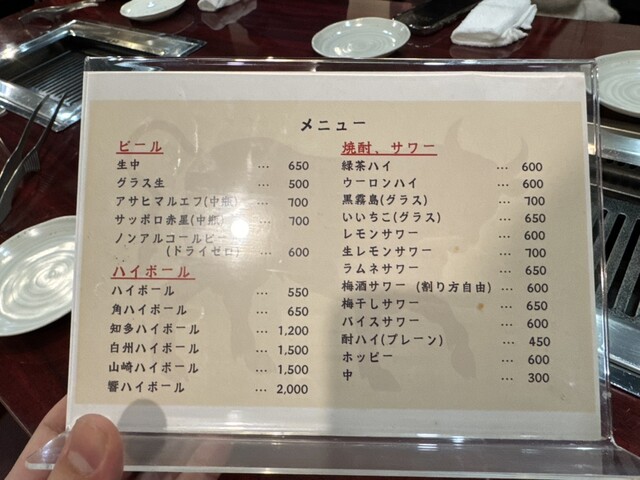 メニュー
ビール
生中 … 650
グラス生 … 500
アサヒマルエフ(中瓶) … 700
サッポロ赤星(中瓶) … 700
ノンアルコールビール
(ドライゼロ) … 600
ハイボール
ハイボール … 550
角ハイボール … 650
知多ハイボール … 1,200
白州ハイボール … 1,500
山崎ハイボール … 1,500
響ハイボール … 2,000
焼酎、サワー
緑茶ハイ … 600
ウーロンハイ … 600
黒霧島(グラス) … 700
いいちこ(グラス) … 650
レモンサワー … 600
生レモンサワー … 700
ラムネサワー … 650
梅酒サワー (割り方自由) … 600
梅干しサワー … 650
バイスサワー … 600
酎ハイ(プレーン) … 450
ホッピー … 600
中 … 300